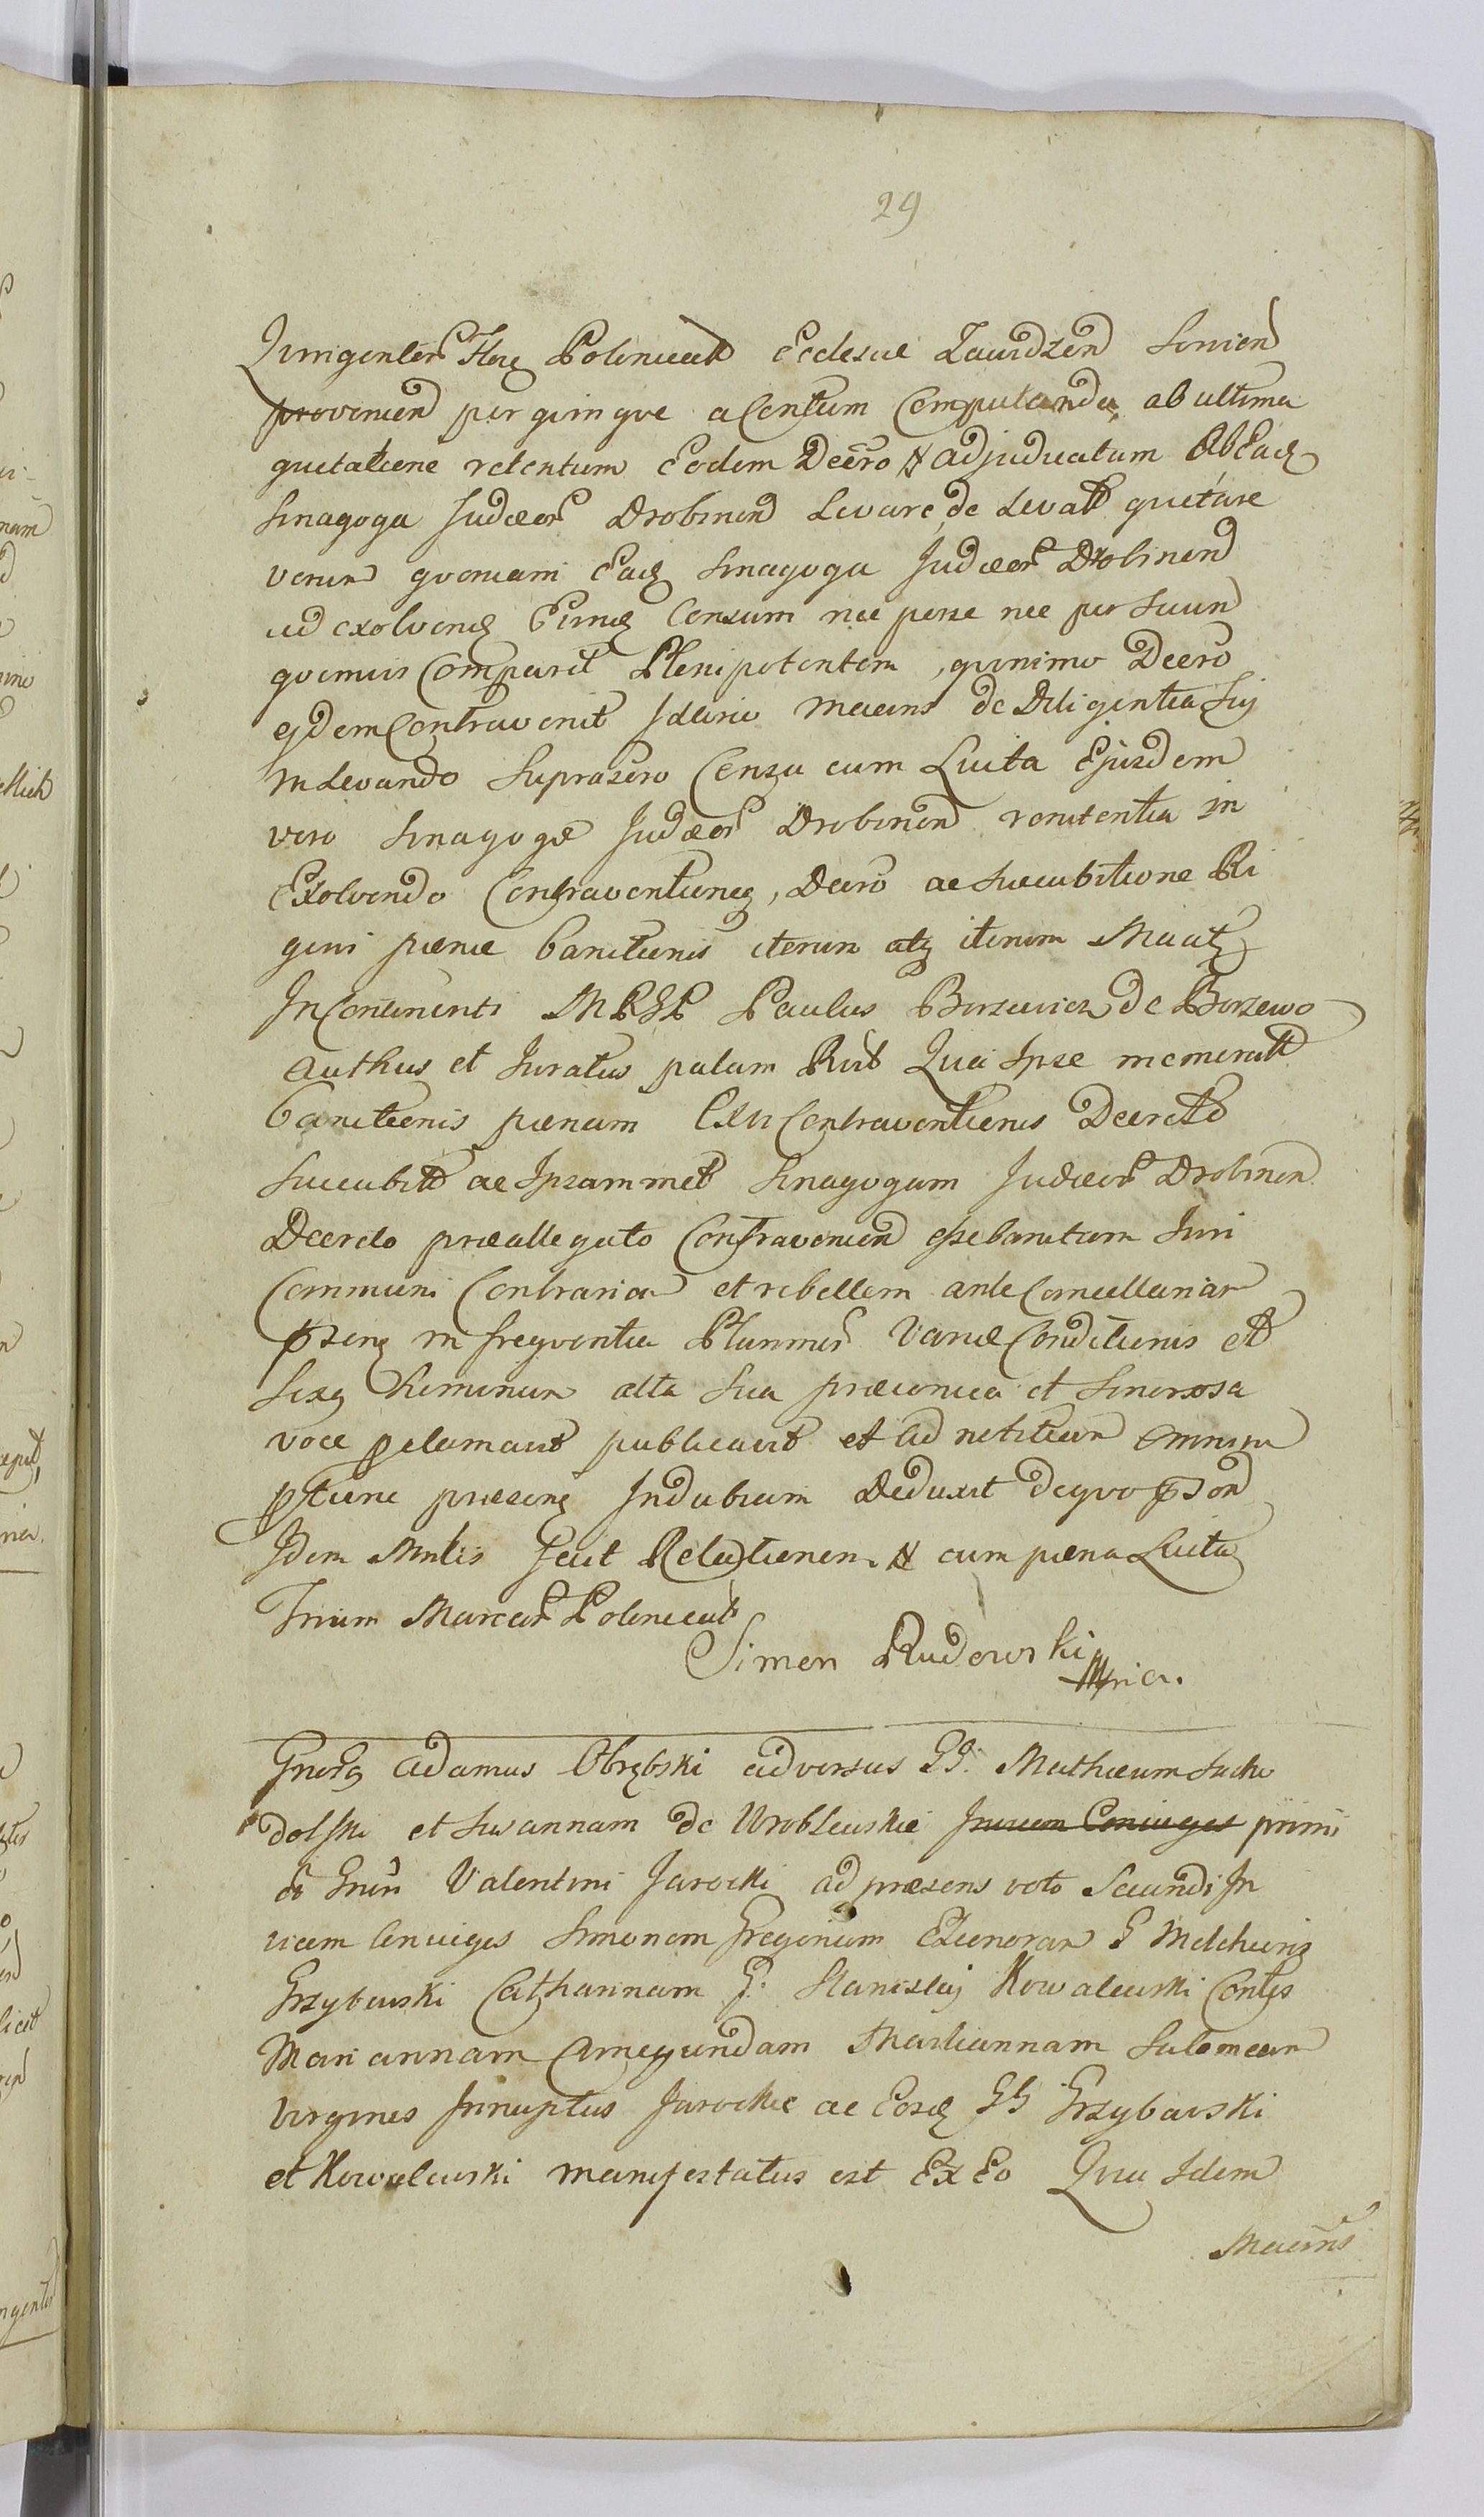 29
Quingentor Flor Polonical Ecclesiae Zawidzen servien
provenien per quinque a Centum Computando ab ultima
quietatione retentum Eodem Decro adjudicatum Ab Eadq
Sinagoga Judaeor Drobinen Levare de Levatt quietare
verum quoniam Eadq Sinagoga Judaeor Drobinen
ad exolvendq Eumdq Censum nec per se nec per Suum
quemvis Comparuit Plenipotentem, quinimo Decro
ejdem Contravenit Ideirco Maeans de Diligentia Sui
in Levando Suprascro Censu cum Luita Ejusdem
vero Sinagogae Judaeor Drobinen renitentia in
Exolvendo Contraventioneq, Decro ac Succubitione Ri
gini paenae banitionis iterum atq iterum Maatq
In Continenti MRGP Paulus Borzewicz de Borzewo
authus et Juratus palam Rivt Quia Ipse memoratt
banitionis paenam Exu Contraventionis Decretti
Succubitt ac Ipsammet Sinagogam Judaeor Drobinen
Decreto praeallegato Contravenien esse banitam Juri
Communi Contrariam et rebellem ante Cancellariam
psenq in frequentia Plurimor Variae Conditionis et
Sexq hominum alta Sua praeconica et Sonorosa
voce pclamavit publicavit et ad notitiam omnium
ptunc praesenq Indubiam Deduxit de quo
Idem Mntlis fecit Relationem cum paena Luita
Trium Marcar Polonical
Simon Rudowski mpria.
Gnerq Adamus Obrębski adversus GG. Mathaeum Sucho
dolski et Susannam de Wroblewskie Invicem Coniuges primi
Gnri Valentini Jarocki ad praesens voto Secundi In
vicem Coniuges Simonem Gregorium Eleonoram G Melchioris
Grzybowski Catharinam G. Stanislai Kowalewski Contges
Mariannam Cunegundam Martiannam Salomeam
virgines Innuptas Jarockie ac Eosdq GG Grzybowski
et Kowalewski manifestatus est Ex Eo Quia Idem
Maeans